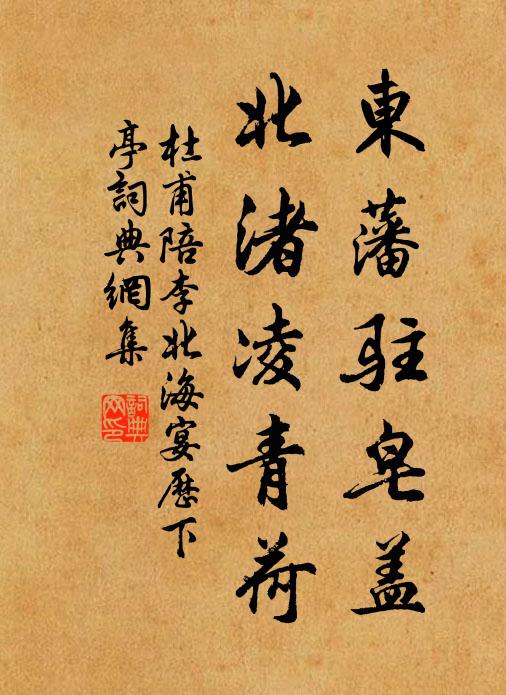 東藩駐皂蓋
北渚凌青荷
杜甫陪李北海宴歷下
亭詞典網集
詞典網印